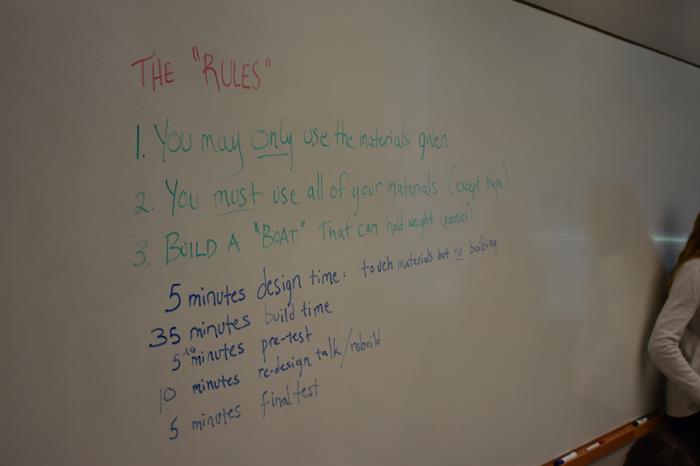 THE "RULES"
1. You may only use the materials given
2. You must use all of your materials (except tape)
3. BUILD A "BOAT" That can hold weight (pennies)
5 minutes design time: touch materials but no building
35 minutes build time
5-10 minutes pre-test
10 minutes re-design talk/rebuild
5 minutes final test